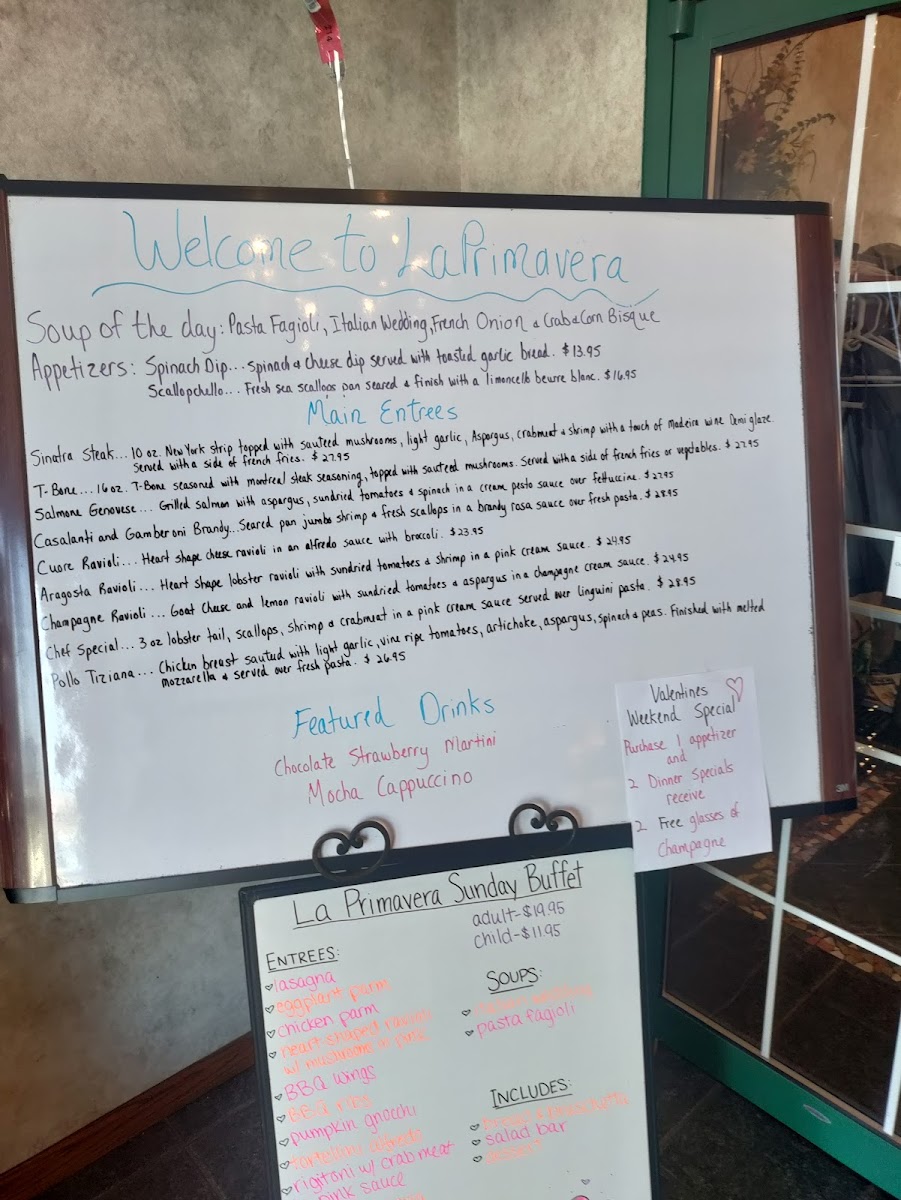 Welcome to LaPrimavera
Soup of the day: Pasta Fagioli, Italian Wedding, French Onion & Crab & Corn Bisque
Appetizers: Spinach Dip... Spinach & cheese dip served with toasted garlic bread. $13.95
Scallopchello... Fresh sea scallops pan seared & finish with a limoncello beurre blanc. $16.95
Main Entrees
Sinatra Steak... 10 oz. New York strip topped with sauteed mushrooms, light garlic, Aspargus, crabmeat & shrimp with a touch of Madeira wine Demi glaze.
Served with a side of french fries. $27.95
T-Bone... 16oz. T-Bone seasoned with montreal steak seasoning, topped with sauteed mushrooms. Served with a side of french fries or vegetables. $27.95
Salmone Genovese... Grilled salmon with aspargus, sundried tomatoes & spinach in a cream pesto sauce over fettuccine. $27.95
Casalanti and Gamberoni Brandy... Seared pan jumbo shrimp & fresh scallops in a brandy rosa sauce over fresh pasta. $28.95
Cuore Ravioli... Heart shape cheese ravioli in an alfredo sauce with broccoli. $23.95
Aragosta Ravioli... Heart shape lobster ravioli with sundried tomatoes & shrimp in a pink cream sauce. $24.95
Champagne Ravioli.... Goat Cheese and lemon ravioli with sundried tomatoes & aspargus in a champagne cream sauce. $24.95
Chef Special... 3 oz lobster tail, scallops, shrimp & crabmeat in a pink cream sauce served over linguini pasta. $28.95
Pollo Tiziana... Chicken breast sauted with light garlic, vine ripe tomatoes, artichoke, aspargus, spinach & peas. Finished with melted
mozzarella & served over fresh pasta. $26.95
Featured Drinks
Chocolate Strawberry Martini
Mocha Cappuccino
Valentines
Weekend Special
Purchase 1 appetizer
and
2 Dinner Specials
receive
2 Free glasses of
Champagne
3M
La Primavera Sunday Buffet
adult-$19.95
child-$11.95
ENTREES:
lasagna
eggplant parm
chicken parm
heart shaped ravioli
w/ mushrooms in pink
BBQ wings
BBQ ribs
pumpkin gnocchi
tortellini alfredo
rigitoni w/ crab meat
pink sauce
SOUPS:
italian wedding
pasta fagioli
INCLUDES:
bread & bruschetta
salad bar
dessert